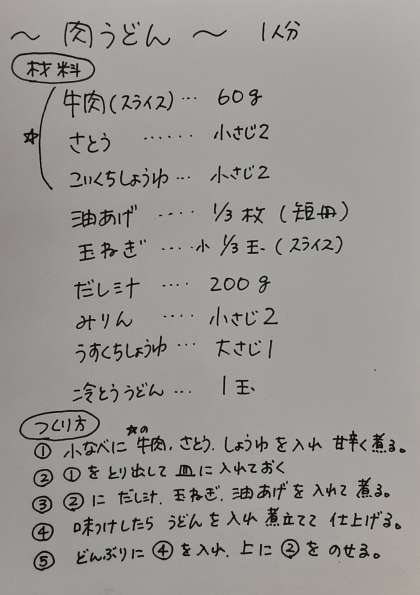 〜 肉うどん 〜 1人分
材料
☆ 牛肉(スライス)… 60g
さとう …… 小さじ2
こいくちしょうゆ … 小さじ2
油あげ …. 1/3枚(短冊)
玉ねぎ …. 小 1/3玉(スライス)
だし汁 …. 200g
みりん …. 小さじ2
うすくちしょうゆ … 大さじ1
冷とううどん … 1玉
つくり方
① 小なべに☆の牛肉、さとう、しょうゆを入れ 甘辛く煮る。
② ①をとり出して 皿に入れておく
③ ②に だし汁、玉ねぎ、油あげを入れて煮る。
④ 味つけしたら うどんを入れ 煮立てて 仕上げる。
⑤ どんぶりに④を入れ、上に②をのせる。